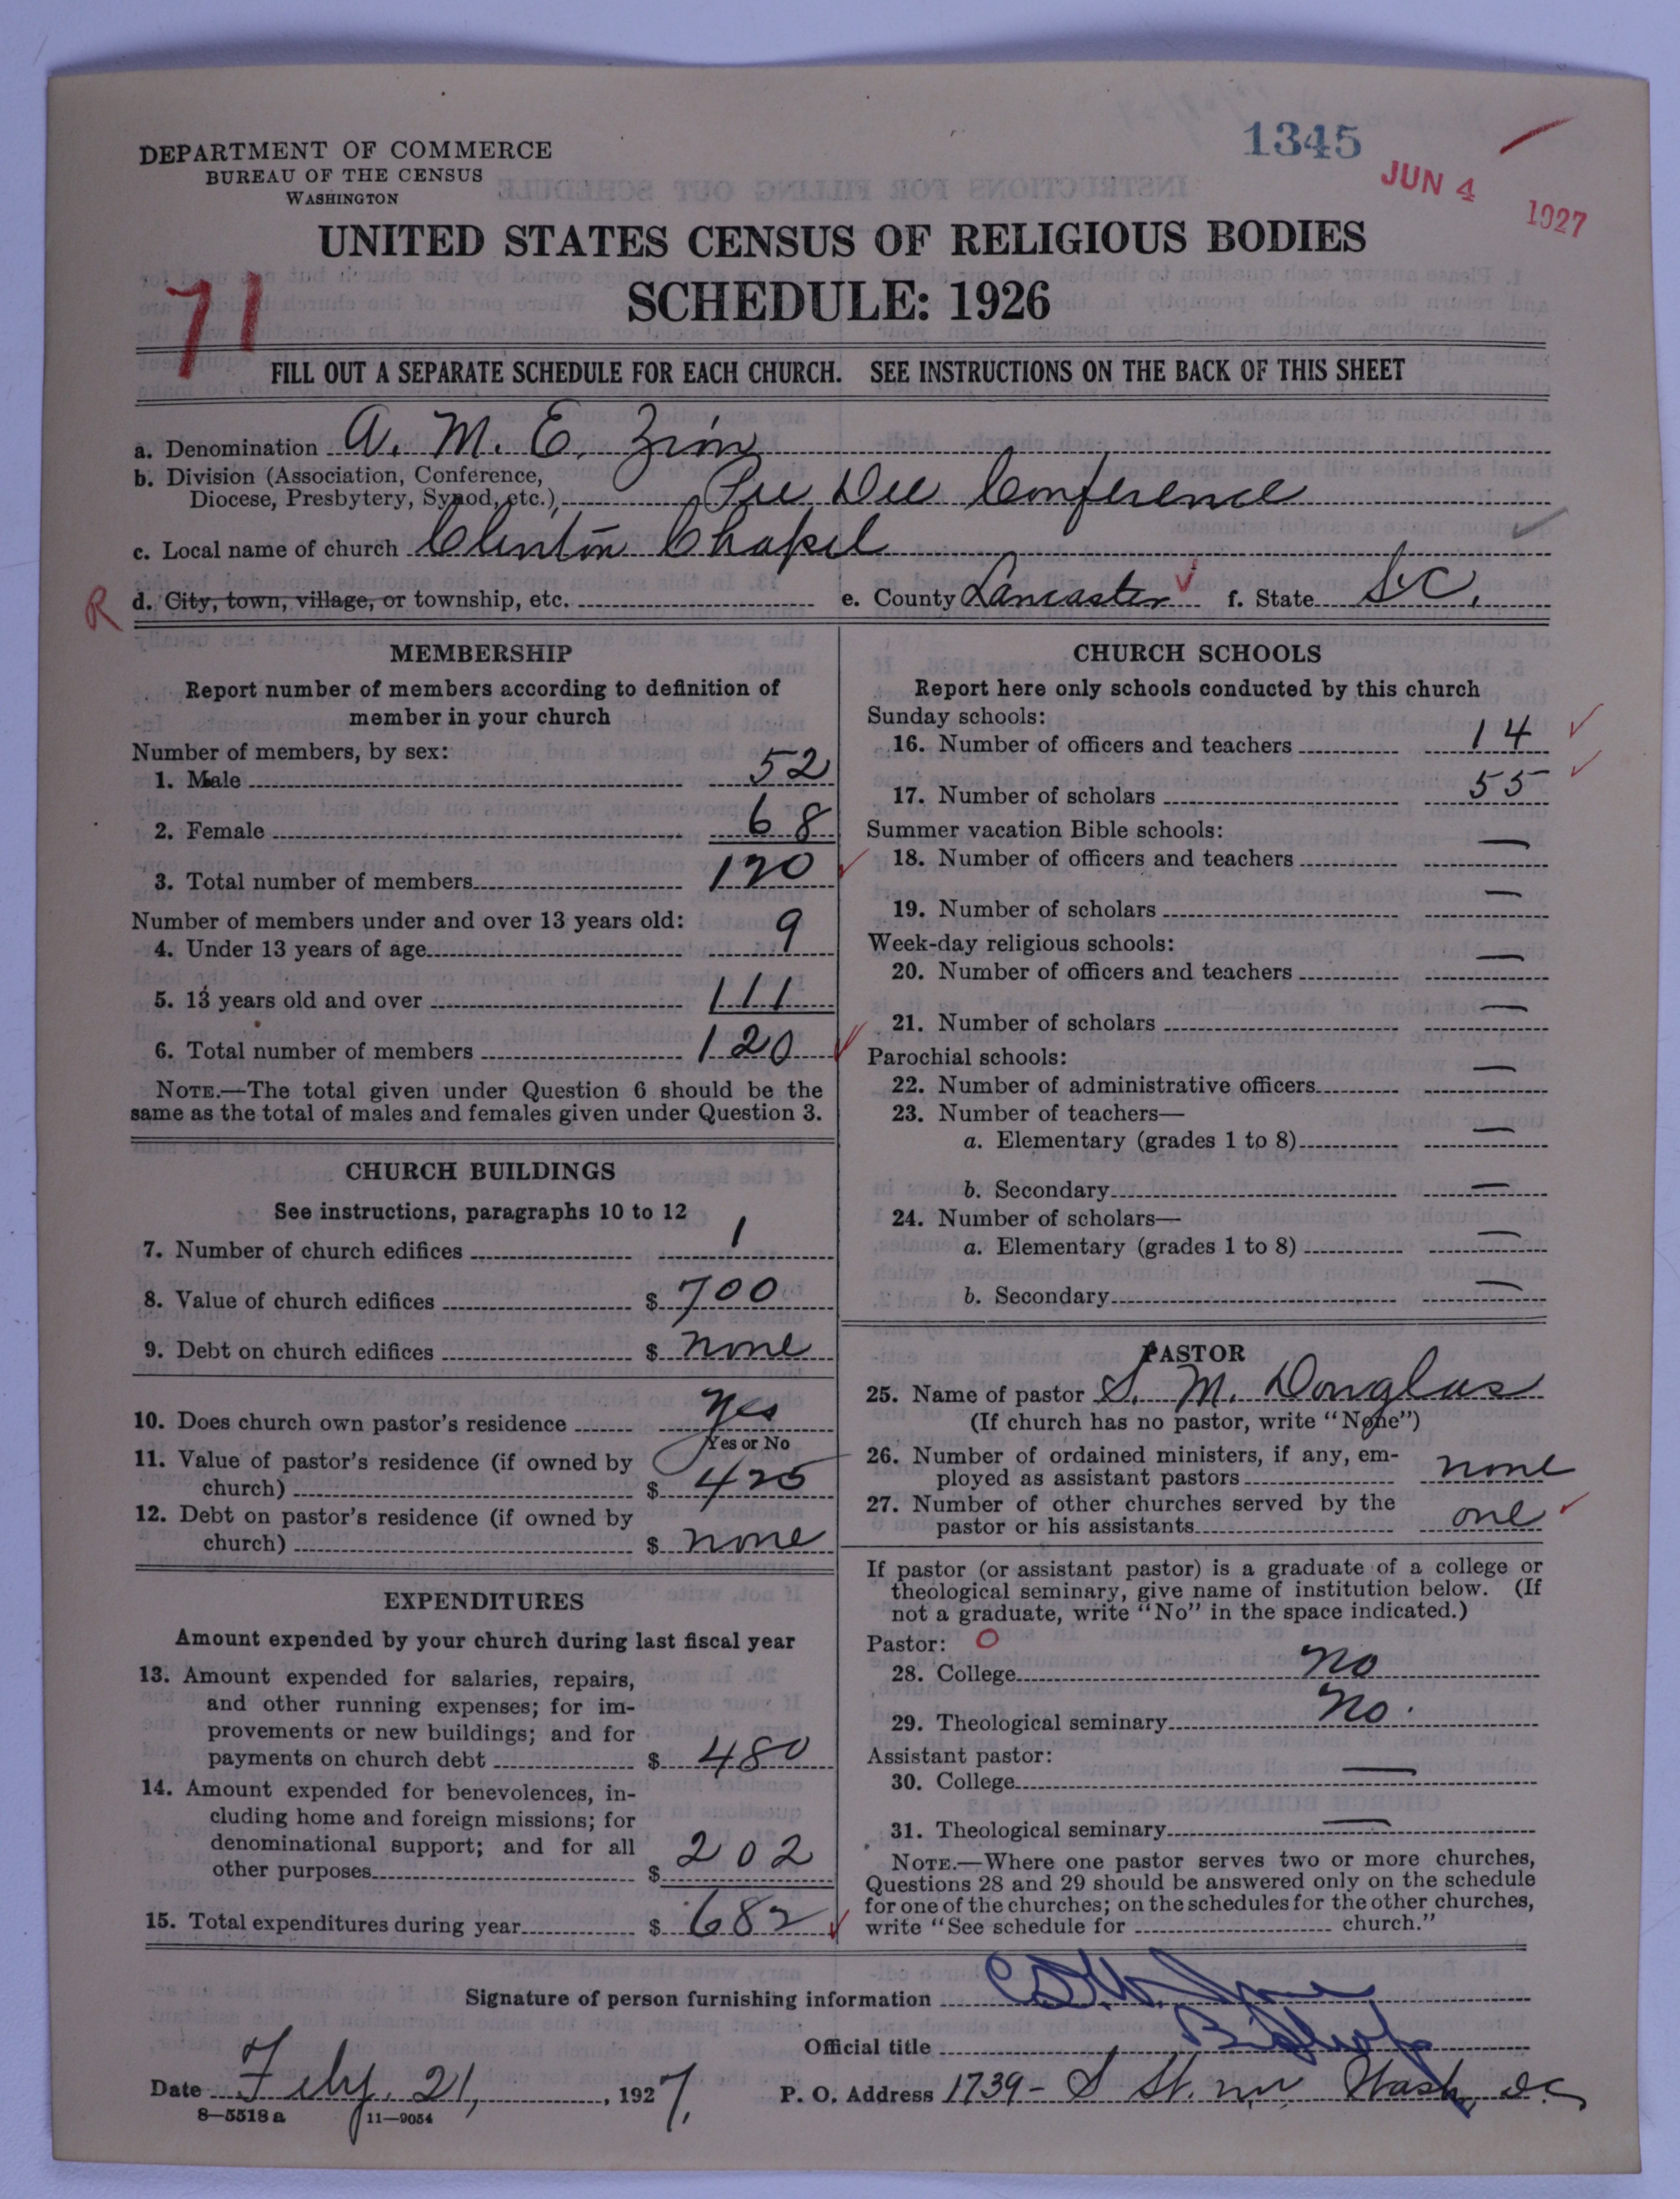 1345
JUN 4 1927
DEPARTMENT OF COMMERCE
BUREAU OF THE CENSUS
WASHINGTON
UNITED STATES CENSUS OF RELIGIOUS BODIES
SCHEDULE: 1926
71
FILL OUT A SEPARATE SCHEDULE FOR EACH CHURCH. SEE INSTRUCTIONS ON THE BACK OF THIS SHEET
a. Denomination A. M. E. Zion
b. Division (Association, Conference,
Diocese, Presbytery, Synod, etc.) Pee Dee Conference
c. Local name of church Clinton Chapel
R d. City, town, village, or township, etc. e. County Lancaster f. State S.C.
MEMBERSHIP
Report number of members according to definition of
member in your church
Number of members, by sex:
1. Male 52
2. Female 68
3. Total number of members 120
Number of members under and over 13 years old:
4. Under 13 years of age 9
5. 13 years old and over 111
6. Total number of members 120
NOTE.—The total given under Question 6 should be the
same as the total of males and females given under Question 3.
CHURCH BUILDINGS
See instructions, paragraphs 10 to 12
7. Number of church edifices 1
8. Value of church edifices $ 700
9. Debt on church edifices $ none
10. Does church own pastor's residence yes
Yes or No
11. Value of pastor's residence (if owned by
church) $ 425
12. Debt on pastor's residence (if owned by
church) $ none
EXPENDITURES
Amount expended by your church during last fiscal year
13. Amount expended for salaries, repairs,
and other running expenses; for im-
provements or new buildings; and for
payments on church debt $ 480
14. Amount expended for benevolences, in-
cluding home and foreign missions; for
denominational support; and for all
other purposes $ 202
15. Total expenditures during year $ 682
CHURCH SCHOOLS
Report here only schools conducted by this church
Sunday schools:
16. Number of officers and teachers 14
17. Number of scholars 55
Summer vacation Bible schools:
18. Number of officers and teachers —
19. Number of scholars —
Week-day religious schools:
20. Number of officers and teachers —
21. Number of scholars —
Parochial schools:
22. Number of administrative officers —
23. Number of teachers—
a. Elementary (grades 1 to 8) —
b. Secondary —
24. Number of scholars—
a. Elementary (grades 1 to 8) —
b. Secondary —
PASTOR
25. Name of pastor S. M. Douglas
(If church has no pastor, write "None")
26. Number of ordained ministers, if any, em-
ployed as assistant pastors none
27. Number of other churches served by the
pastor or his assistants one
If pastor (or assistant pastor) is a graduate of a college or
theological seminary, give name of institution below. (If
not a graduate, write "No" in the space indicated.)
Pastor: O
28. College No
29. Theological seminary No.
Assistant pastor:
30. College —
31. Theological seminary —
NOTE.—Where one pastor serves two or more churches,
Questions 28 and 29 should be answered only on the schedule
for one of the churches; on the schedules for the other churches,
write "See schedule for church."
Signature of person furnishing information
Official title Bishop
Date Feby. 21, 1927. P. O. Address 1739 - S St. nw Wash, D.C.
8—5518a 11—9054